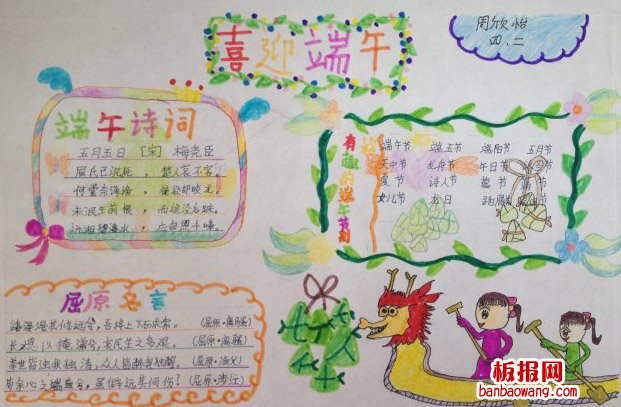 喜迎端午
周欣怡
四、二
端午诗词
五月五日 [宋] 梅尧臣
屈氏已沉死，楚人哀不容。
何尝奈谗谤，徒欲却蛟龙。
未泯生前恨，而追没后踪。
沅湘碧潭水，应自照千峰。
有趣的端午节
端午节 端五节 端阳节 五月节
天中节 龙舟节 午日节
夏节 诗人节
女儿节 龙日
屈原名言
路漫漫其修远兮，吾将上下而求索。（屈原·离骚）
长太息以掩涕兮，哀民生之多艰。（屈原·离骚）
举世皆浊我独清，众人皆醉我独醒。（屈原·渔父）
苟余心之端直兮，虽僻远其何伤？（屈原·涉江）
板报网
banbaowang.com